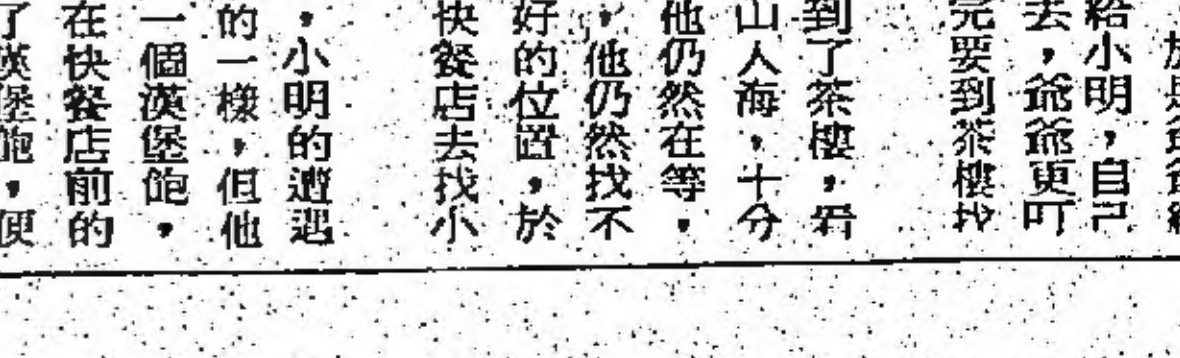 於是爺爺
給小明，自己
去，爺爺更叮
完要到茶樓找
到了茶樓，看
山人海，十分
他仍然在等，
，他仍然找不
好的位置，於
快餐店去找小
，小明的遭遇
的一樣，但他
一個漢堡飽，
在快餐店前的
了漢堡飽，便